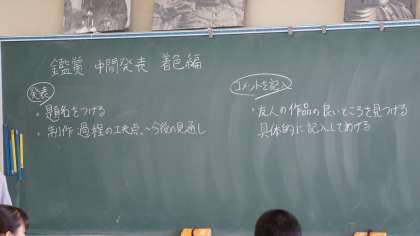 鑑賞 中間発表 着色編
発表
・題名をつける
・制作過程の工夫点、〜今後の見通し
コメントを記入
・友人の作品の良いところを見つける
具体的に記入してあげる